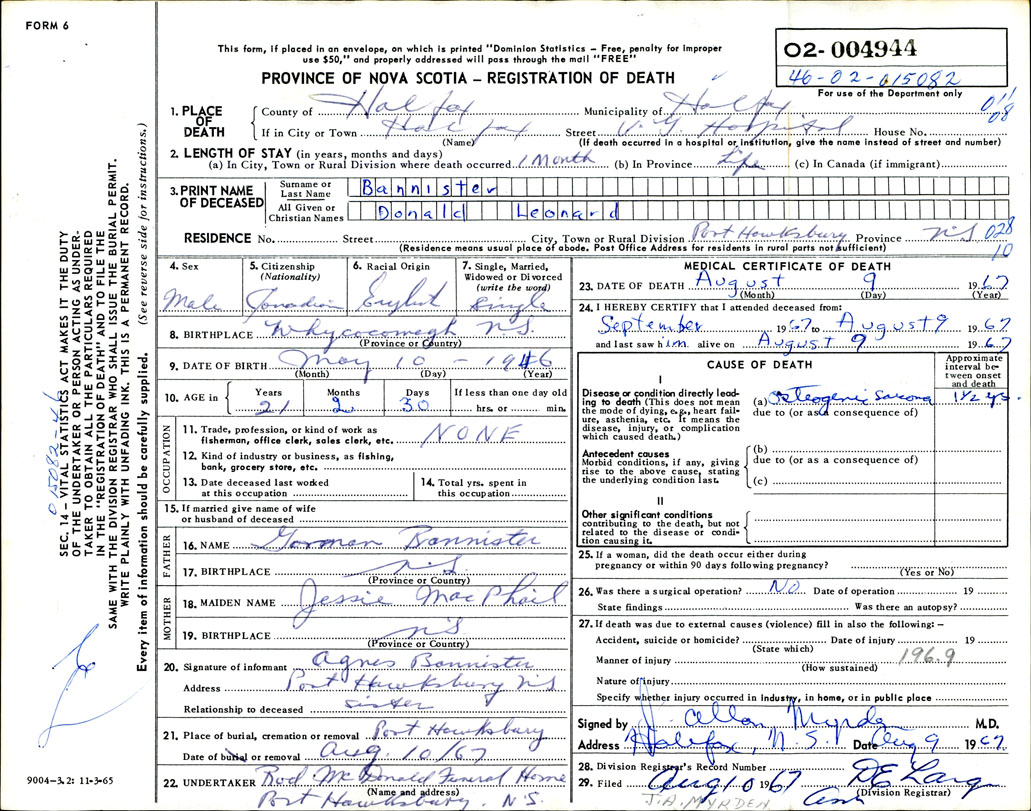 FORM 6
This form, if placed in an envelope, on which is printed "Dominion Statistics – Free, penalty for improper
use $50," and properly addressed will pass through the mail "FREE"
O2- 004944
46-02-015082
For use of the Department only
PROVINCE OF NOVA SCOTIA – REGISTRATION OF DEATH
1. PLACE OF DEATH
County of Halifax Municipality of Halifax
011
08
If in City or Town Halifax Street V.G. Hospital House No.
(Name) (If death occurred in a hospital or institution, give the name instead of street and number)
2. LENGTH OF STAY (in years, months and days)
(a) In City, Town or Rural Division where death occurred 1 Month (b) In Province Life (c) In Canada (if immigrant)
3. PRINT NAME OF DECEASED
Surname or Last Name Bannister
All Given or Christian Names Donald Leonard
RESIDENCE No. Street City, Town or Rural Division Port Hawksbury Province NS
028
10
(Residence means usual place of abode. Post Office Address for residents in rural parts not sufficient)
4. Sex
Male
5. Citizenship
(Nationality)
Canadian
6. Racial Origin
English
7. Single, Married,
Widowed or Divorced
(write the word)
Single
8. BIRTHPLACE Whycocomagh N.S.
(Province or Country)
9. DATE OF BIRTH May 10 - 1946
(Month) (Day) (Year)
10. AGE in
Years Months Days If less than one day old
21 2 30 hrs. or min.
OCCUPATION
11. Trade, profession, or kind of work as
fisherman, office clerk, sales clerk, etc. NONE
12. Kind of industry or business, as fishing,
bank, grocery store, etc.
13. Date deceased last worked
at this occupation
14. Total yrs. spent in
this occupation
15. If married give name of wife
or husband of deceased
FATHER
16. NAME Gorman Bannister
17. BIRTHPLACE N.S.
(Province or Country)
MOTHER
18. MAIDEN NAME Jessie MacPhail
19. BIRTHPLACE NS
(Province or Country)
20. Signature of informant Agnes Bannister
Address Port Hawksbury NS
Relationship to deceased sister
21. Place of burial, cremation or removal Port Hawksbury
Date of burial or removal Aug. 10/67
22. UNDERTAKER Rod McDonald Funeral Home
(Name and address)
Port Hawksbury. N.S.
MEDICAL CERTIFICATE OF DEATH
23. DATE OF DEATH August 9 1967
(Month) (Day) (Year)
24. I HEREBY CERTIFY that I attended deceased from:
September 1967 to August 9 1967
and last saw him alive on August 9 1967
CAUSE OF DEATH
Approximate
interval be-
tween onset
and death
I
Disease or condition directly lead-
ing to death (This does not mean
the mode of dying, e.g., heart fail-
ure, asthenia, etc. It means the
disease, injury, or complication
which caused death.)
(a) Osteogenic Sarcoma 1 1/2 yrs.
due to (or as a consequence of)
Antecedent causes
Morbid conditions, if any, giving
rise to the above cause, stating
the underlying condition last.
(b)
due to (or as a consequence of)
(c)
II
Other significant conditions
contributing to the death, but not
related to the disease or condi-
tion causing it.
25. If a woman, did the death occur either during
pregnancy or within 90 days following pregnancy?
(Yes or No)
26. Was there a surgical operation? NO Date of operation 19
State findings Was there an autopsy?
27. If death was due to external causes (violence) fill in also the following: –
Accident, suicide or homicide? Date of injury 19
(State which)
Manner of injury 196.9
(How sustained)
Nature of injury
Specify whether injury occurred in Industry, in home, or in public place
Signed by J. Allan Myrden M.D.
Address Halifax, N.S. Date Aug 9 1967
28. Division Registrar's Record Number
29. Filed Aug 10 1967
(Division Registrar)
J.A. MYRDEN
SEC. 14 – VITAL STATISTICS ACT MAKES IT THE DUTY
OF THE UNDERTAKER OR PERSON ACTING AS UNDER-
TAKER TO OBTAIN ALL THE PARTICULARS REQUIRED
IN THE "REGISTRATION OF DEATH" AND TO FILE THE
SAME WITH THE DIVISION REGISTRAR WHO SHALL ISSUE THE BURIAL PERMIT.
WRITE PLAINLY WITH UNFADING INK. THIS IS A PERMANENT RECORD.
Every item of information should be carefully supplied. (See reverse side for instructions.)
015082-46
9004–3.2: 11-3-65